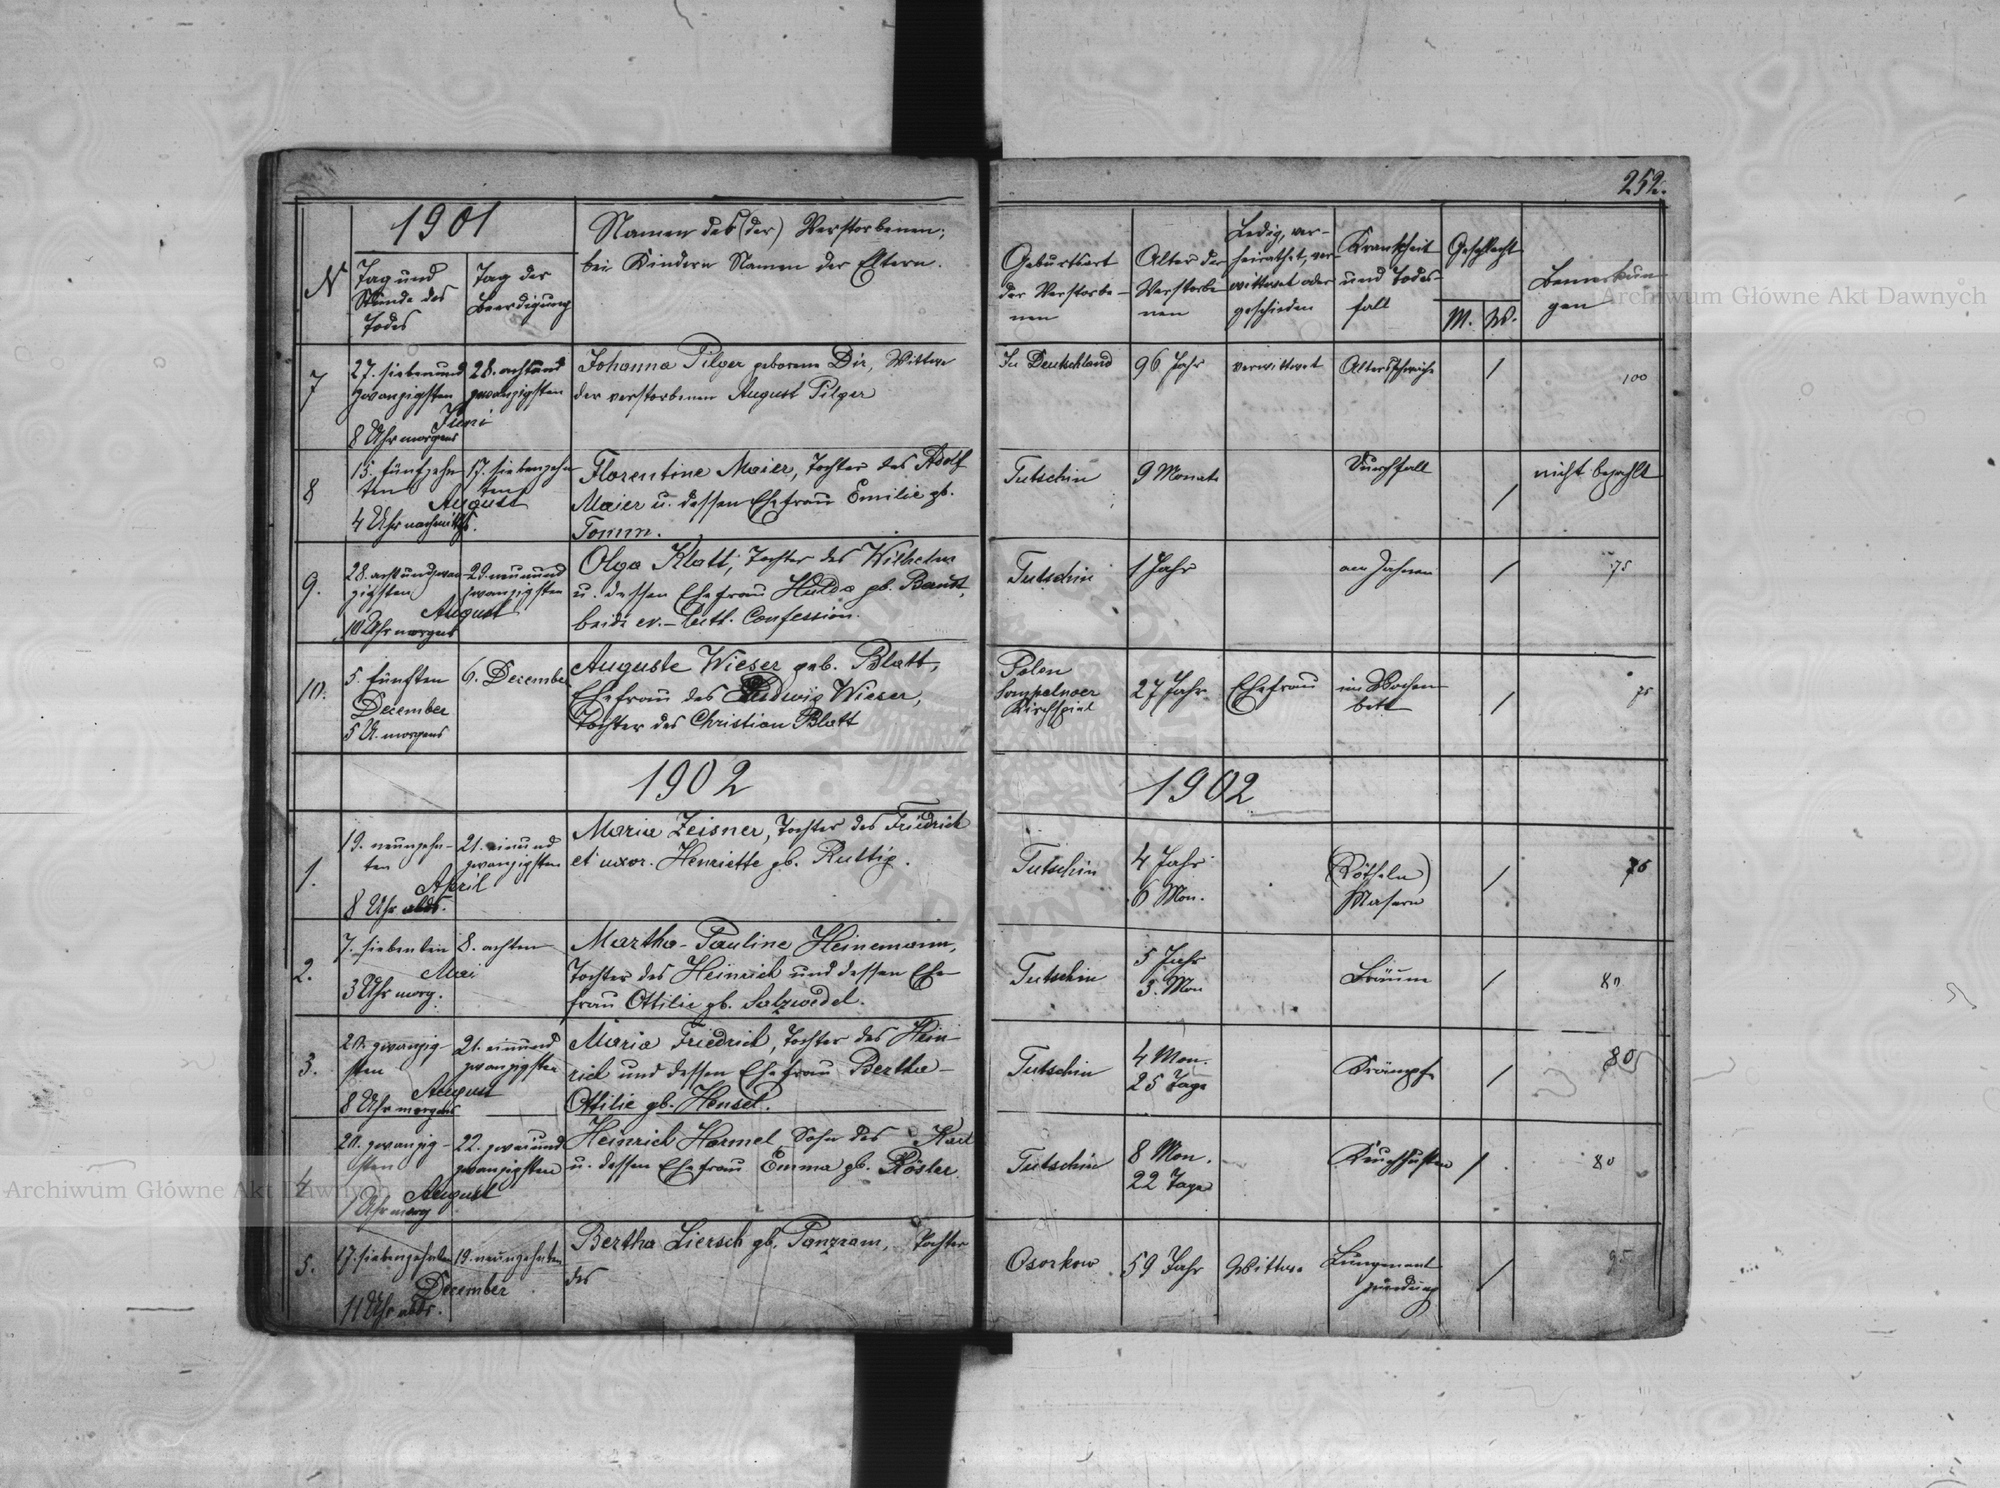 252.
1901
Namen des (der) Verstorbenen;
bei Kindern Namen der Eltern.
N
Tag und
Stunde des
Todes
Tag der
Beerdigung
Geburtsort
der Verstorbe-
nen
Alter der
Verstorbe
nen
Ledig, ver-
heirathet, ver-
wittwet oder
geschieden
Krankheit
und Todes-
fall
Geschlecht
M. W.
Bemerkun-
gen
7
27. siebenund 28. achtund
zwanzigsten zwanzigsten
Juni
8 Uhr morgens
Johanna Pilger geborene Dir, Wittwe
der verstorbenen August Pilger
In Deutschland 96 Jahr verwittwet Altersschwäche / 100
8
15. fünfzehn- 17. siebenzehn
ten ten
August
4 Uhr nachmittgs.
Florentine Maier, Tochter des Adolf
Maier u. dessen Ehefrau Emilie gb.
Tomm.
Tutschin 9 Monate Durchfall / nicht bezahlt
9.
28. achtundzwan- 29. neunund
zigsten zwanzigsten
August
10 Uhr morgens
Olga Klatt, Tochter des Wilhelm
u. dessen Ehefrau Hulda gb. Bandt,
beide ev.-luth. Confession.
Tutschin 1 Jahr am Zahnen / 75
10.
5. fünften 6. December
December
5 U. morgens
Auguste Wieser geb. Blatt,
Ehefrau des Ludwig Wieser,
Tochter des Christian Blatt
Polen
Sompolnoer
Kirchspiel
27 Jahr Ehefrau im Wochen
bett / 75
1902
1902
1.
19. neunzehn- 21. einund
ten zwanzigsten
April
8 Uhr abds.
Maria Zeisner, Tochter des Friedrich
et uxor. Henriette gb. Ruttig.
Tutschin 4 Jahr
6 Mon.
(Rötheln)
Masern / 75
2.
7. siebenten 8. achten
Mai
3 Uhr morg.
Martha-Pauline Heinemann,
Tochter des Heinrich und dessen Ehe-
frau Ottilie gb. Salzwedel.
Tutschin 5 Jahr
3. Mon
Bräune / 80
3.
20. zwanzig- 21. einund
sten zwanzigsten
August
8 Uhr morgens
Maria Friedrich, Tochter des Hein-
rich und dessen Ehefrau Bertha-
Ottilie gb. Hensel.
Tutschin 4 Mon.
25 Tage
Krämpfe / 80
4
20. zwanzig- 22. zweiund
sten zwanzigsten
August
1 Uhr morg
Heinrich Harmel, Sohn des Karl
u. dessen Ehefrau Emma gb. Rösler.
Tutschin 8 Mon.
22 Tage
Keuchhusten / 80
5.
17. siebenzehnten 19. neunzehnten
December
11 Uhr abds.
Bertha Liersch gb. Panzram, Tochter
des
Osorkow 59 Jahr Wittwe Lungenent
zündung / 95
Archiwum Główne Akt Dawnych
Archiwum Główne Akt Dawnych